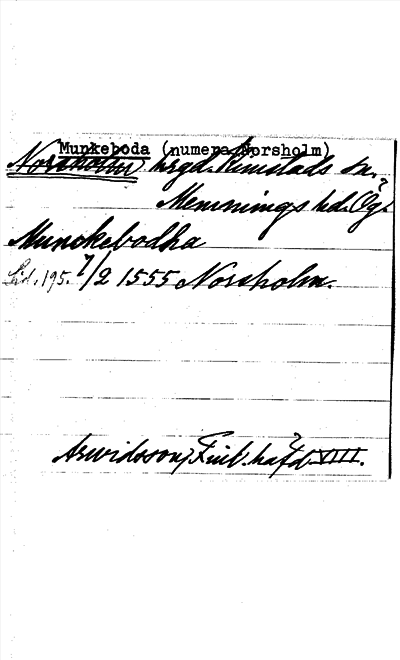 Munkeboda (numera Norsholm)
Norsholm, hrgd. Kimstads sn.,
Memmings hd. Ög.
Munckebodha
Sid. 195. 7/2 1555 Norsholm.
Arwidsson, Finl. häfd. VIII.